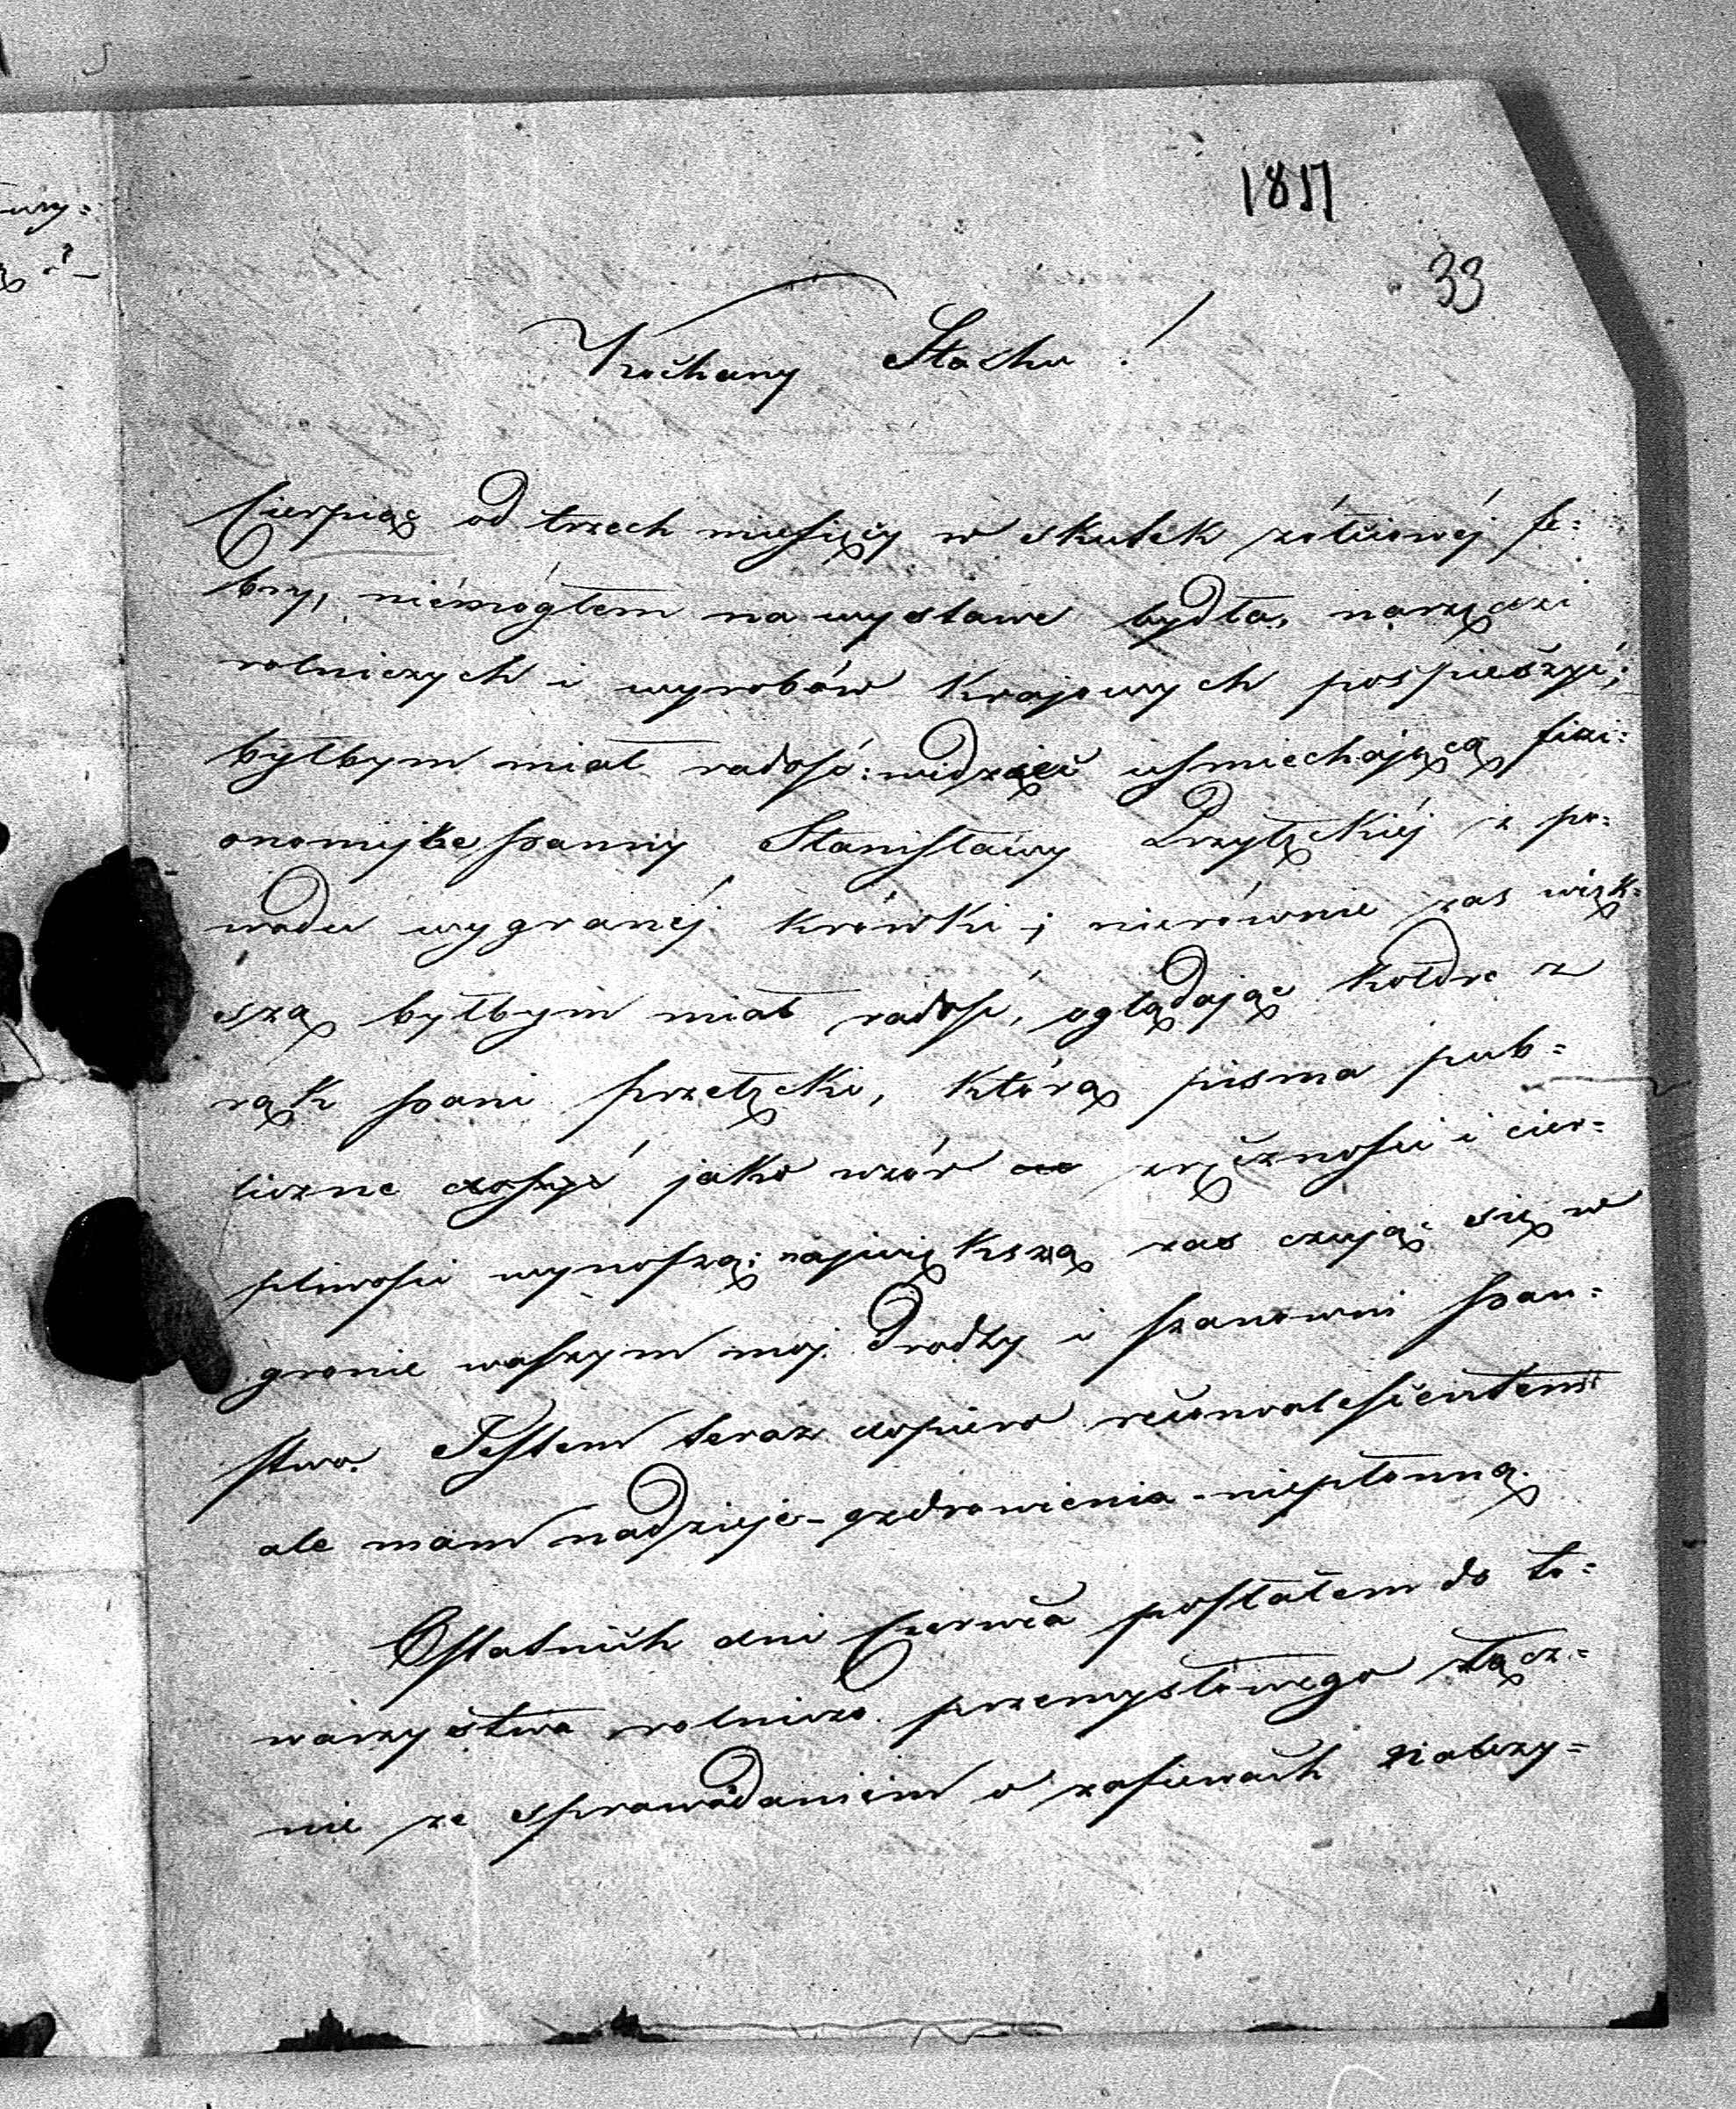 1857
33
Kochany Stachu!
Cierpiąc od trzech miesięcy w skutek żółciowéj fe=
bry, niémogłem na wystawe bydła, narzędzi
rolniczych i wyrobów krajowych pospieszyć;
byłbym miał radość: widząc uśmiechającą fizi=
onomijke panny Stanisławy Przyłęckiéj z po=
wodu wygranéj krówki; nierównie zas więk=
szą byłbym miał radość, oglądając kołdre z
rąk pani Przełęcki, którą pisma pub=
liczne dosyć jako wzór zręczności i cier=
pliwości wynoszą; największą zas czując się w
gronie waszym moj Drodzy i szanowni pań=
stwo. Jestem teraz dopiero rekonwalescientem
ale mam nadzieje - ozdrowienia - niepłonną.
Ostatnich dni Czerwca posłałem do to=
warzystwa rolniczo przemysłowego łącz=
nie ze sprawozdaniem o zasiewach